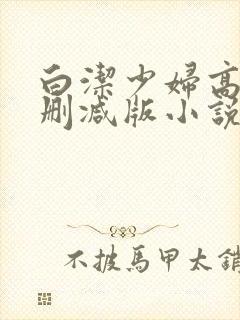 白潔少婦高
刪减版小說
不披馬甲太銷